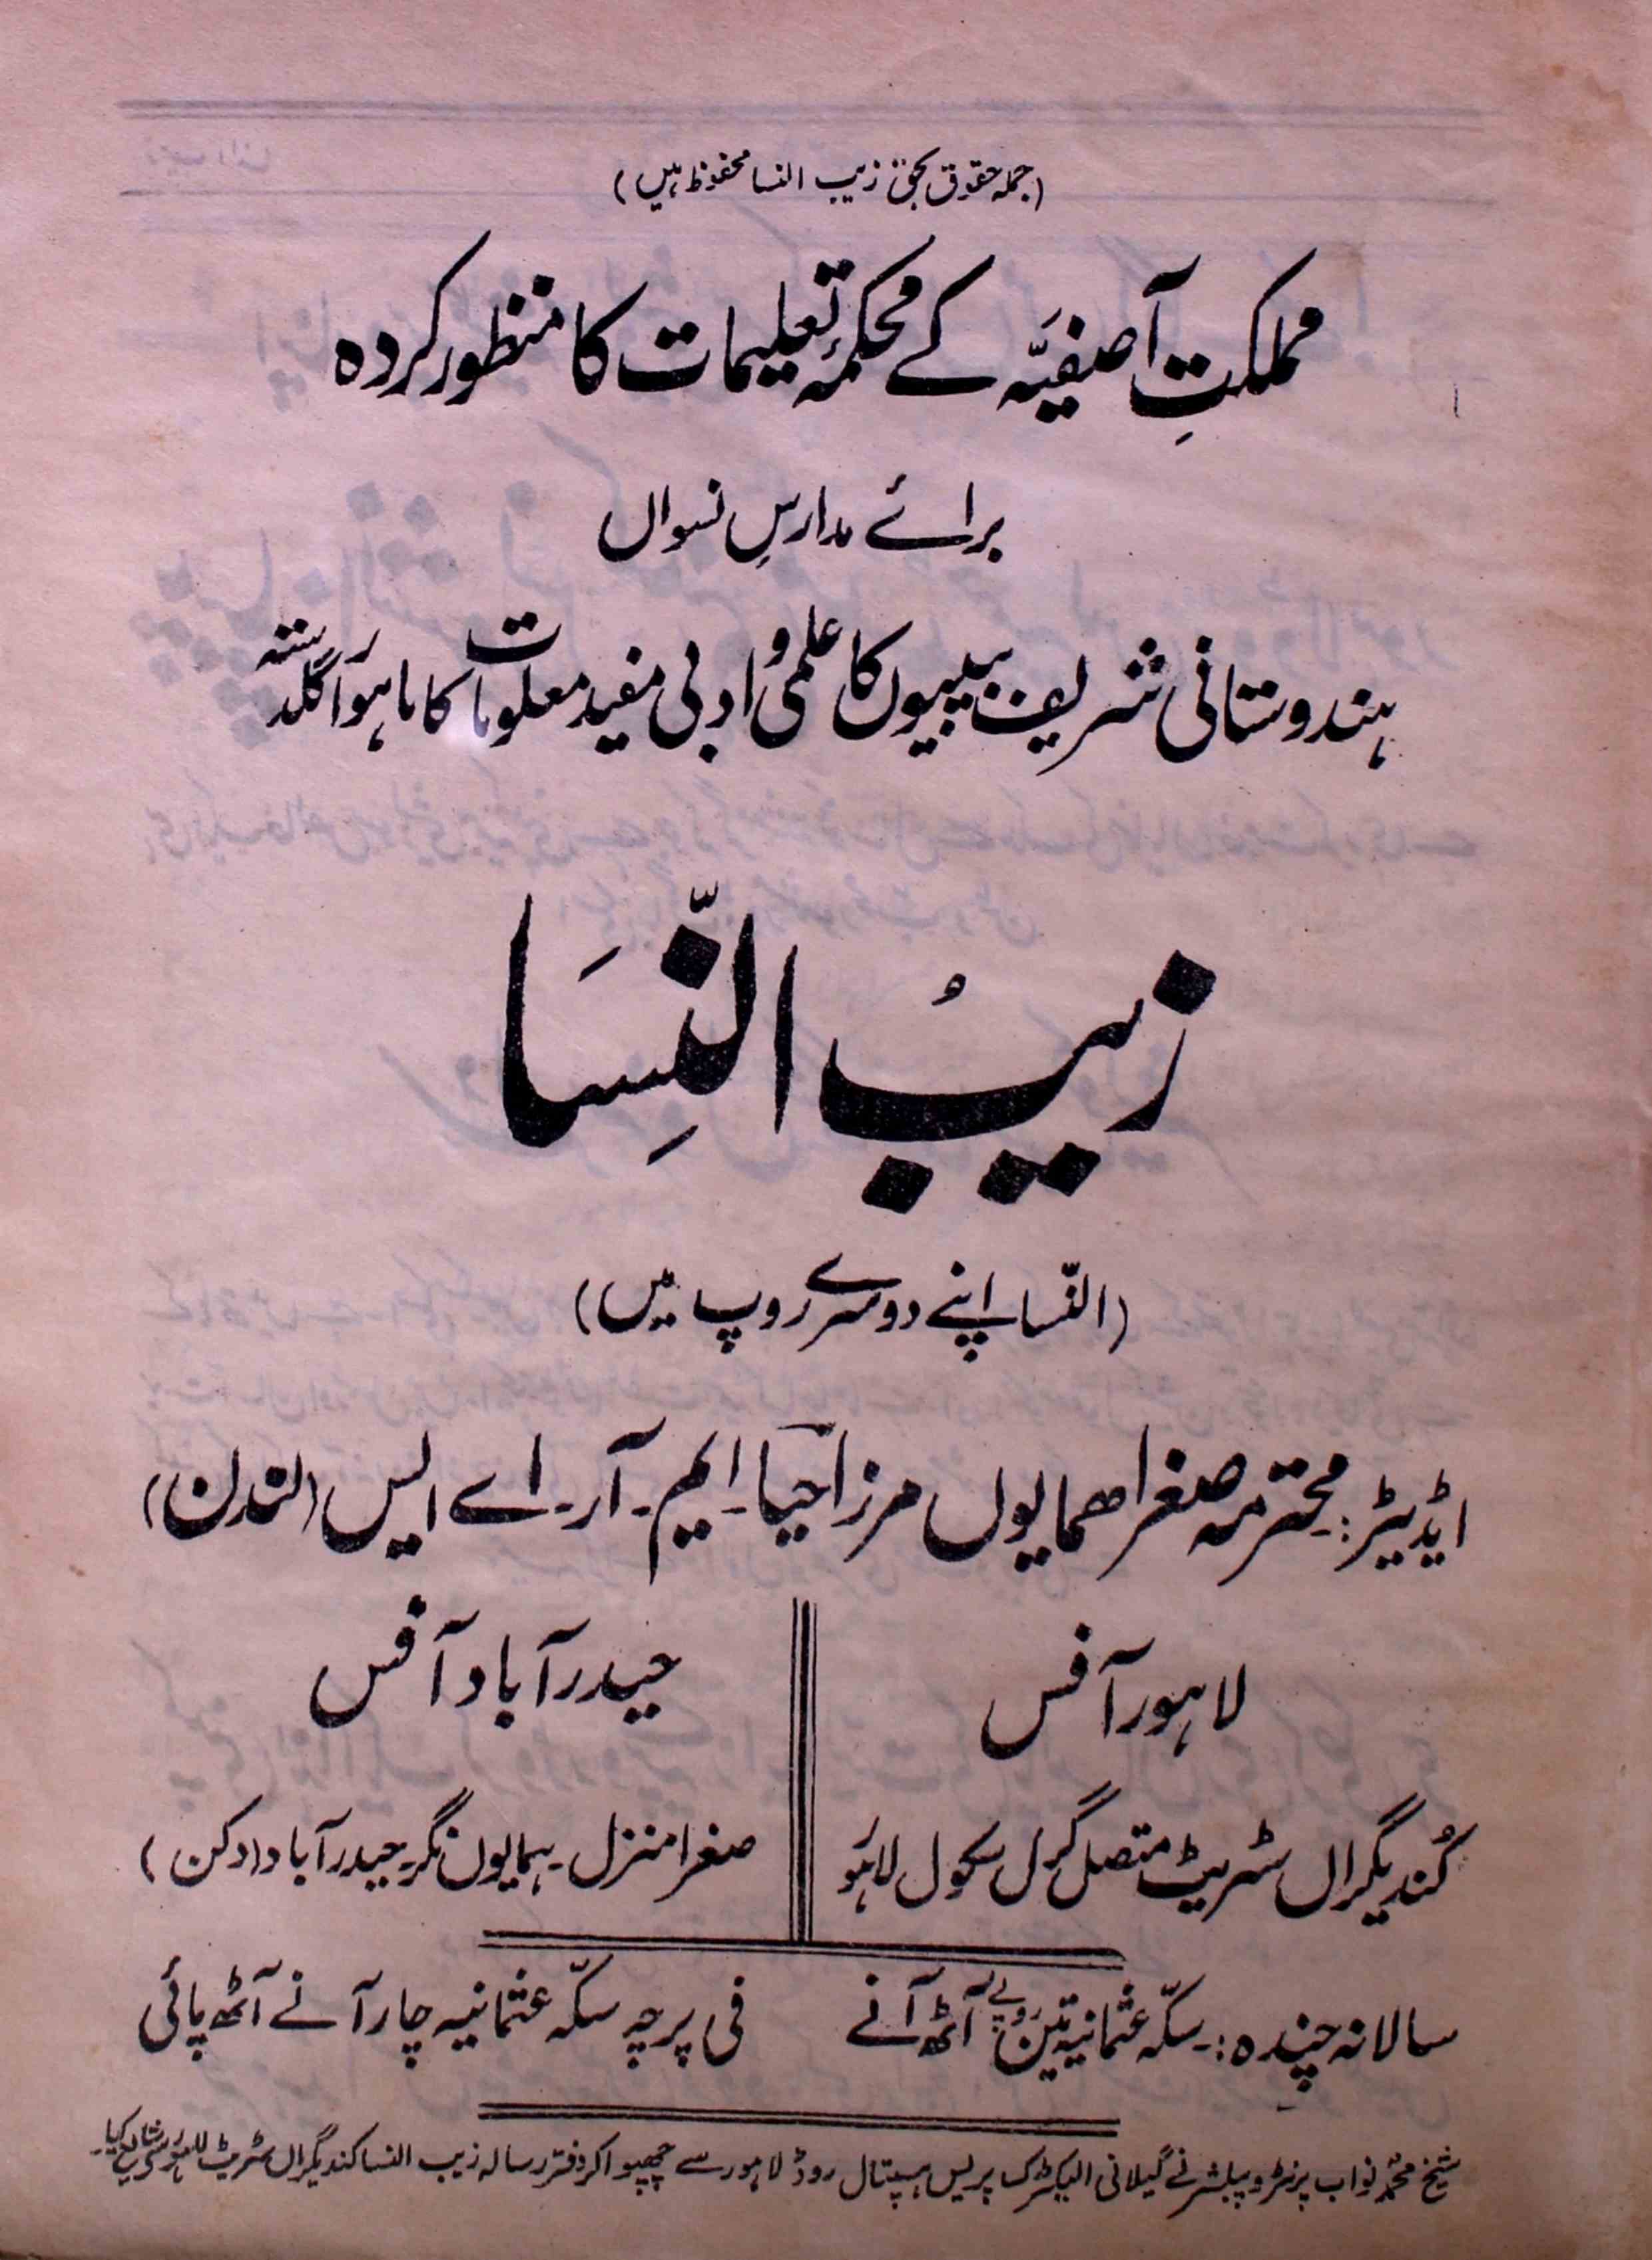 (جملہ حقوق بحق زیب النسا محفوظ ہیں)
مملکتِ آصفیہّ کے محکمۂ تعلیمات کا منظور کردہ
برائے مدارسِ نسواں
ہندوستانی شریف بیبیوں کا علمی و ادبی مفید معلومات کا ماہوار گلدستہ
زیبُ النِّسَا
(النّسا اپنے دوسرے روپ میں)
اڈیٹر:۔ محترمہ صغرا ھمایوں مرزا حیا۔ ایم۔ آر۔ اے ایس (لندن)
لاہور آفس
کُندیگراں سٹریٹ متصل گرل سکول لاہور
حیدر آباد آفس
صغرا منزل۔ ہمایوں نگر۔ حیدر آباد (دکن)
سالانہ چندہ:۔ سکّہ عثمانیہ تین روپے آٹھ آنے
فی پرچہ سکّہ عثمانیہ چار آنے آٹھ پائی
شیخ محمد نواب پرنٹر و پبلشر نے گیلانی الیکٹرک پریس ہسپتال روڈ لاہور سے چھپوا کر دفتر رسالہ زیب النسا کندیگراں سٹریٹ لاہور سے شائع کیا۔